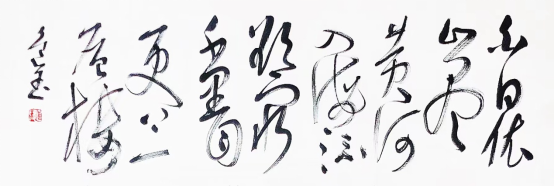 白日依
山尽
黄河
入海流
欲穷
千里目
更上一
层楼